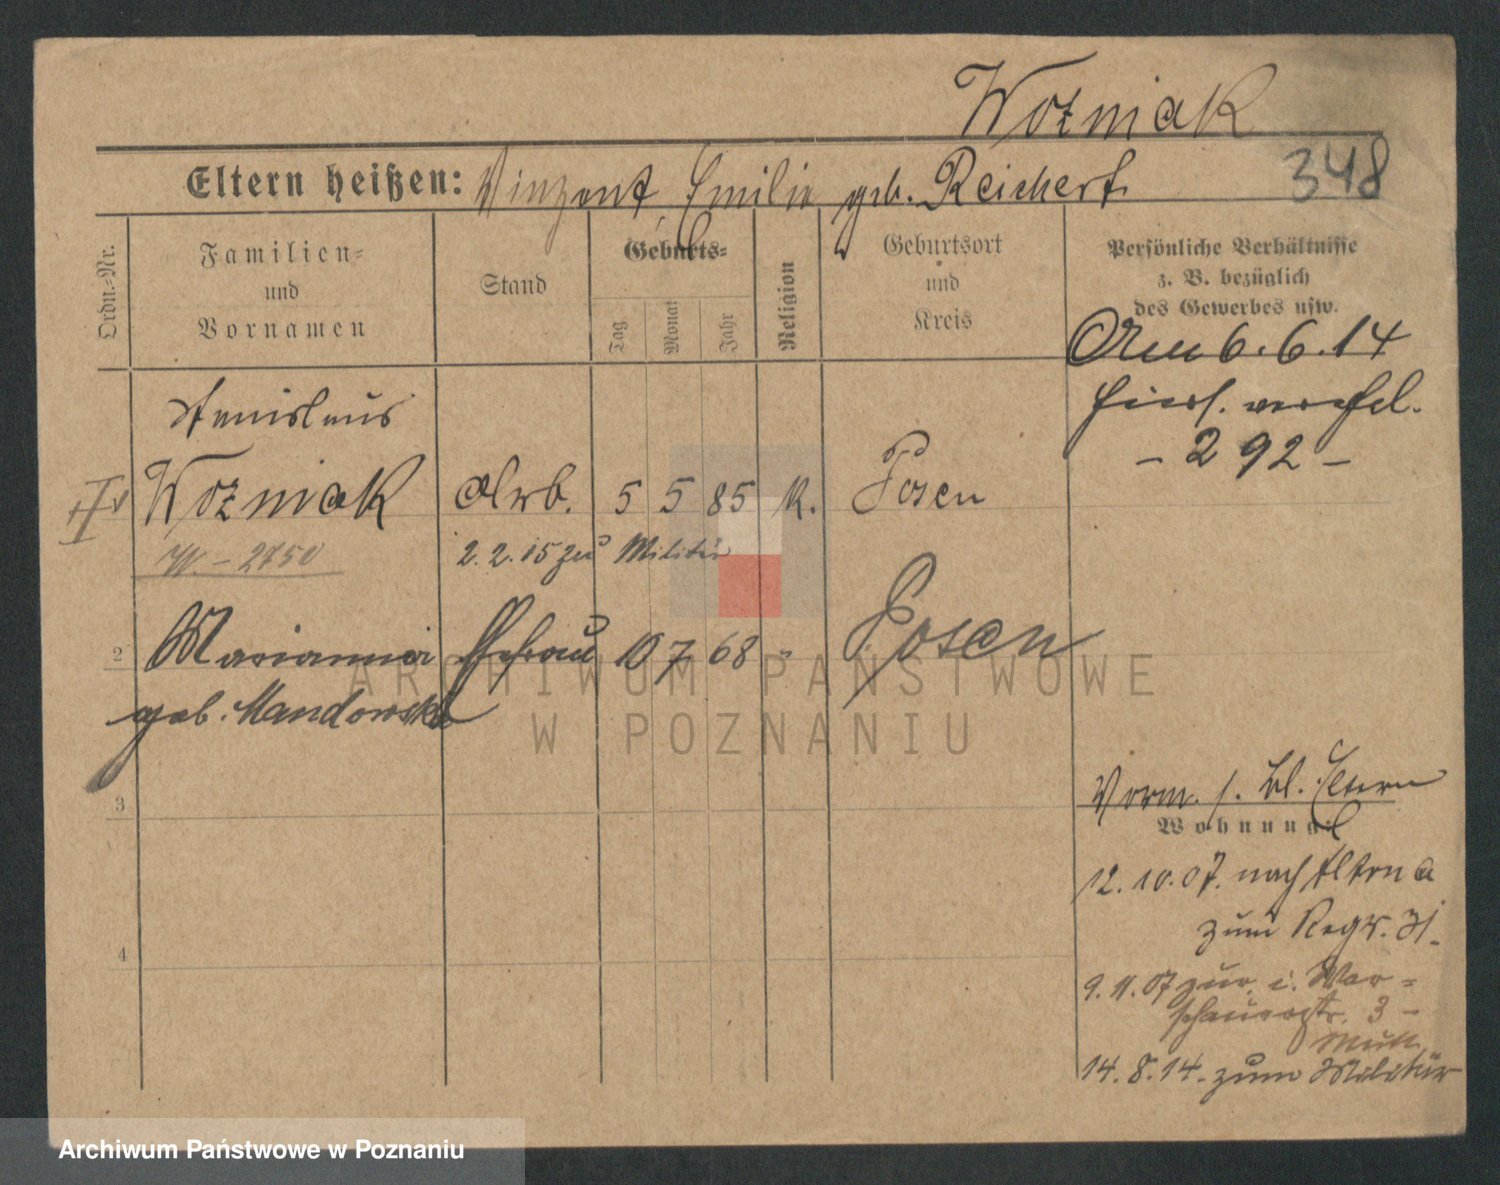 Wozniak
348
Eltern heißen: Vinzent Emilie geb. Reichert
Ordn.-Nr.
Familien-
und
Vornamen
Stand
Geburts-
Tag
Monat
Jahr
Religion
Geburtsort
und
Kreis
Persönliche Verhältnisse
z. B. bezüglich
des Gewerbes usw.
Am 6.6.14
hiers. verehel.
- 292 -
Stanislaus
Wozniak Arb. 5 5 85 K. Posen
W. - 2750 2.2.15 zu Militär
2 Marianna Ehefrau 10 7 68 " Posen
geb. Mandowska
3
Vorm. s. bl. Eltern
Wohnung:
12.10.07. nach Eltern a
zum Regr.
4
9.11.07 zur. i. War=
schauerstr. 3 -
14.8.14. zum Militär
ARCHIWUM PAŃSTWOWE
W POZNANIU
Archiwum Państwowe w Poznaniu